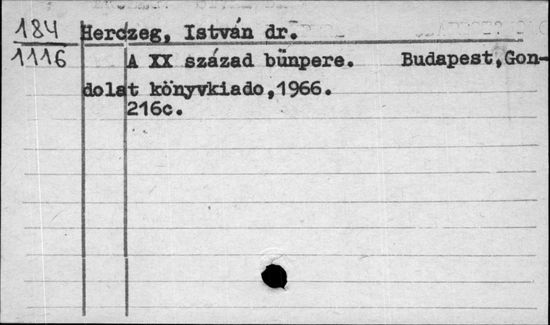 184
1116
Herczeg, István dr.
A XX század bünpere. Budapest,Gon-
dolat könyvkiado,1966.
216c.